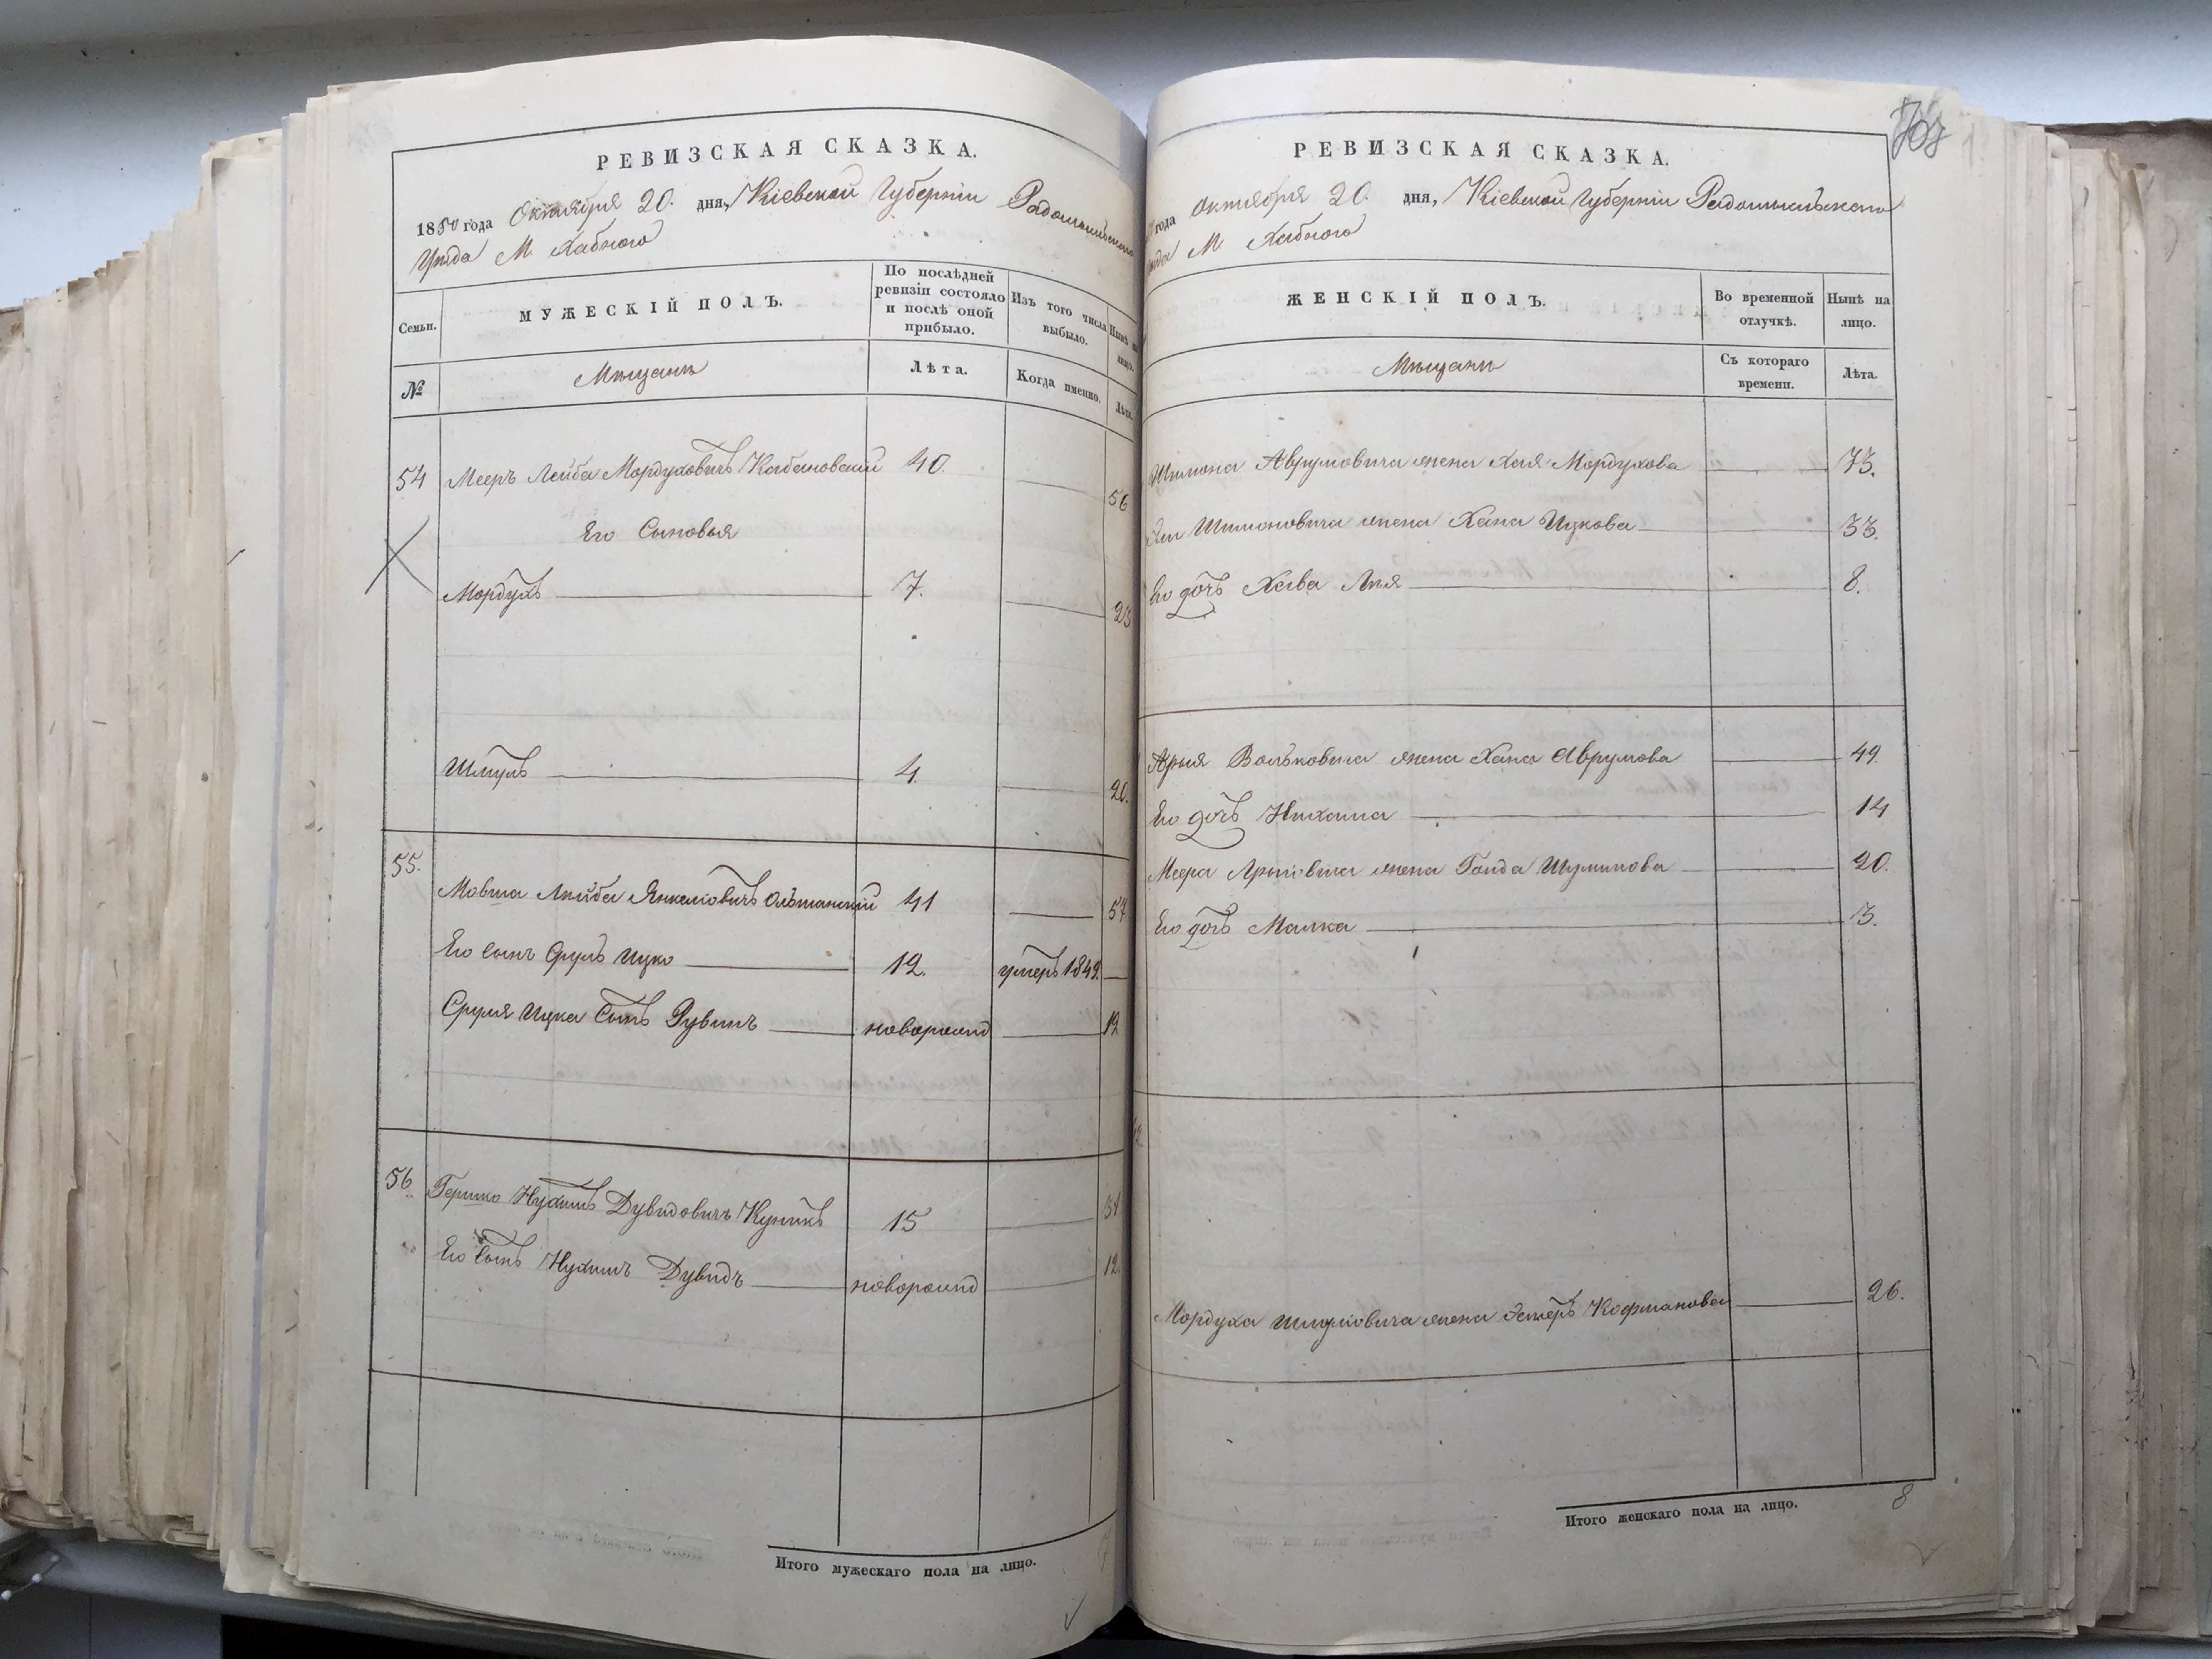 РЕВИЗСКАЯ СКАЗКА.
1850 года Октября 20. дня, Кіевской Губерніи Радомысльскаго
Уѣзда М. Хабного
Семьи. МУЖЕСКІЙ ПОЛЪ. По послѣдней ревизіи состояло и послѣ оной прибыло. Изъ того числа выбыло. Нынѣ на лицо.
№ Мѣщанѣ Лѣта. Когда именно. Лѣта.
54 Мееръ Лейба Мордуховичъ Кабановскій 40. 56
Его Сыновья
Мордухъ 7. 23
Шмуль 4. 20.
55. Мовша Лейба Янкелiовичъ Ольшанскій 41 57
Его сынъ Сруль Ицко 12. умеръ 1849.
Сруля Ицка Сынъ Рувинъ новорожд 12
56. Гершко Нухимъ Дувидовичъ Куликъ 15 31
Его Сынъ Нухимъ Дувидъ новорожд 12.
Итого мужескаго пола на лицо.
РЕВИЗСКАЯ СКАЗКА.
года Октября 20. дня, Кіевской Губерніи Радомысльскаго
М. Хабного
ЖЕНСКІЙ ПОЛЪ. Во временной отлучкѣ. Нынѣ на лицо.
Мѣщанѣ Съ котораго времени. Лѣта.
Шимона Аврумовича жена Хая Мордухова 73.
Шимоновича жена Хана Ицкова 33.
Его дочь Хава Лея 8.
Арыя Вольковича жена Хана Аврумова 49.
Его дочь Нихама 14
Меера Арыовича жена Голда 20.
Его дочь Малка 3.
Мордуха Шмулiовича жена Эстеръ Кофманова 26.
Итого женскаго пола на лицо. 8